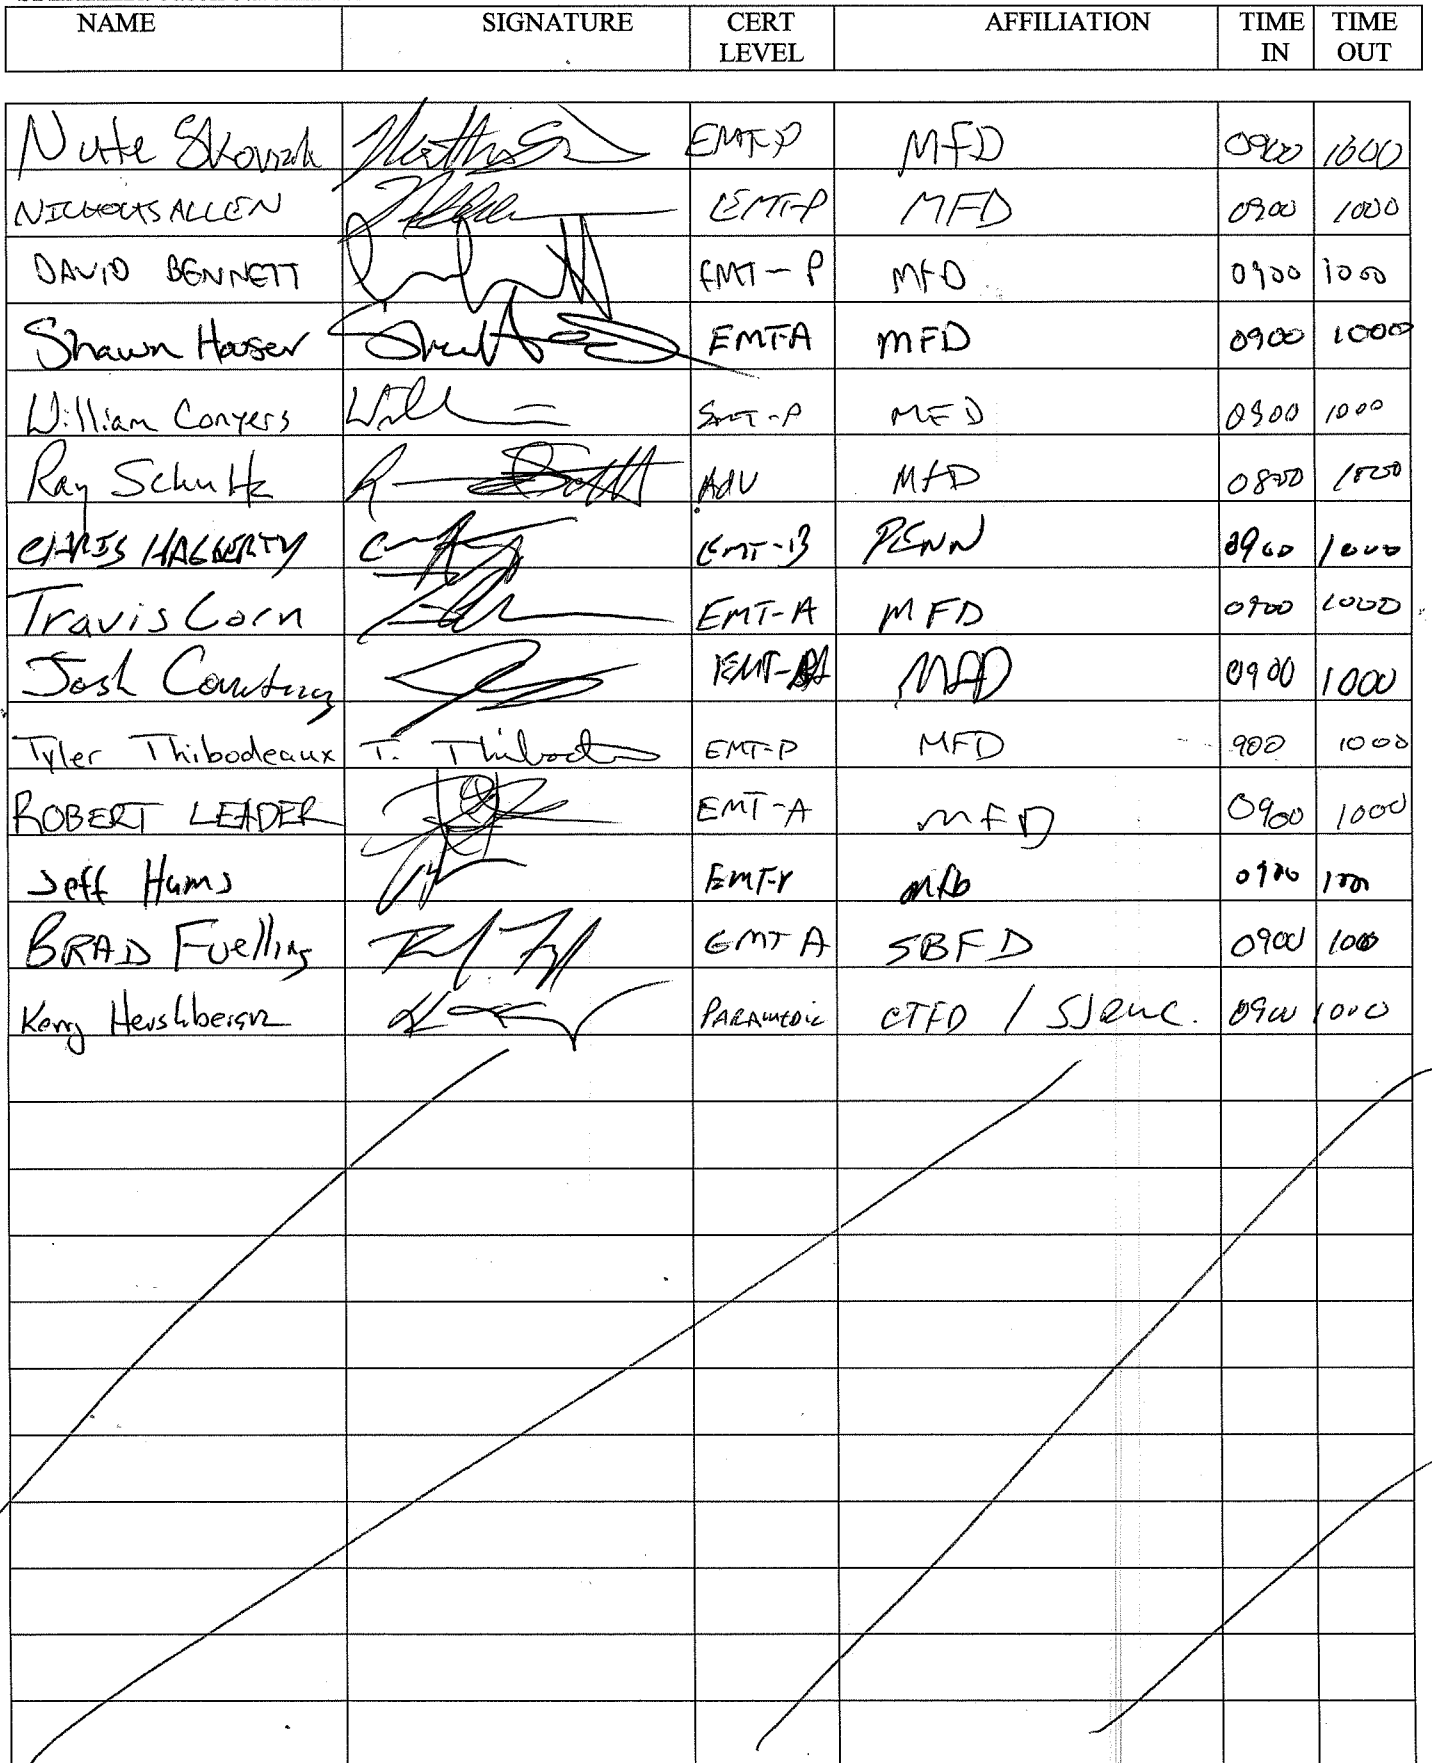 NAME SIGNATURE CERT LEVEL AFFILIATION TIME IN TIME OUT
Nate EMT-P MFD 0900 1000
NICHOLAS ALLEN EMT-P MFD 0900 1000
DAVID BENNETT EMT-P MFD 0900 1000
Shawn Houser EMT-A MFD 0900 1000
William Conyers EMT-P MFD 0900 1000
Ray Schultz Adv MFD 1000
CHRIS HAGGERTY EMT-B PENN 0900 1000
Travis Corn EMT-A MFD 0900 1000
Josh MFD 0900 1000
Tyler Thibodeaux T. EMT-P MFD 900 1000
ROBERT LEADER EMT-A MFD 0900 1000
Jeff MFD 0900
BRAD Fuelling EMT A SBFD 0900 1000
PARAMEDIC CTFD / 0900 1000